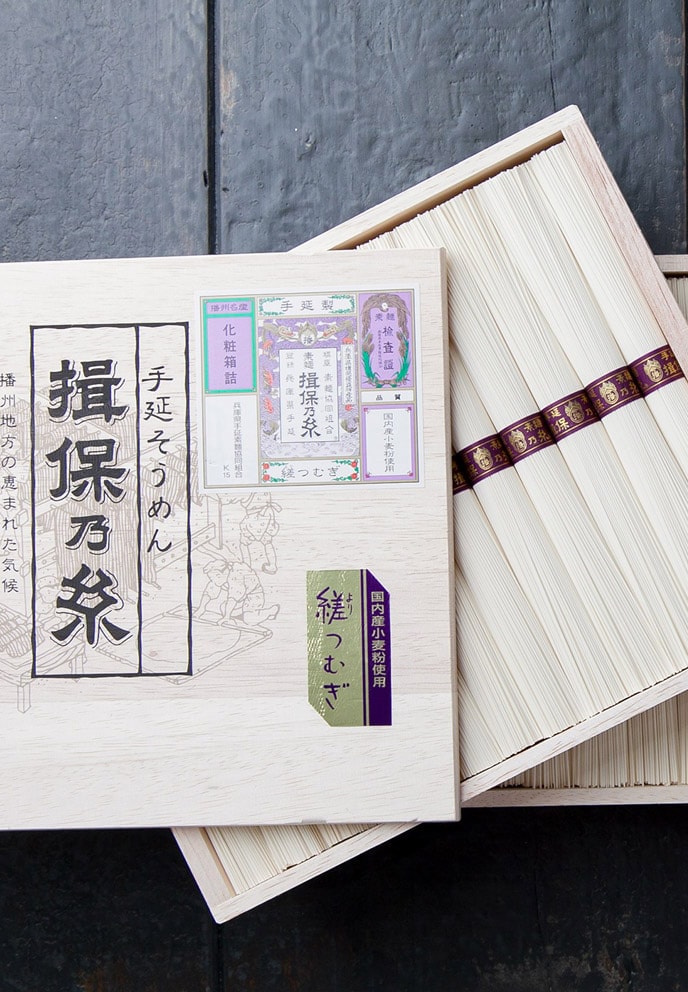 手延そうめん
揖保乃糸
播州地方の恵まれた気候
播州名産
化粧箱詰
兵庫県手延素麺協同組合
K15
手延製
揖保乃糸
縒つむぎ
素麺
検査證
品質
国内産小麦粉使用
国内産小麦粉使用
より
縒つむぎ
揖保